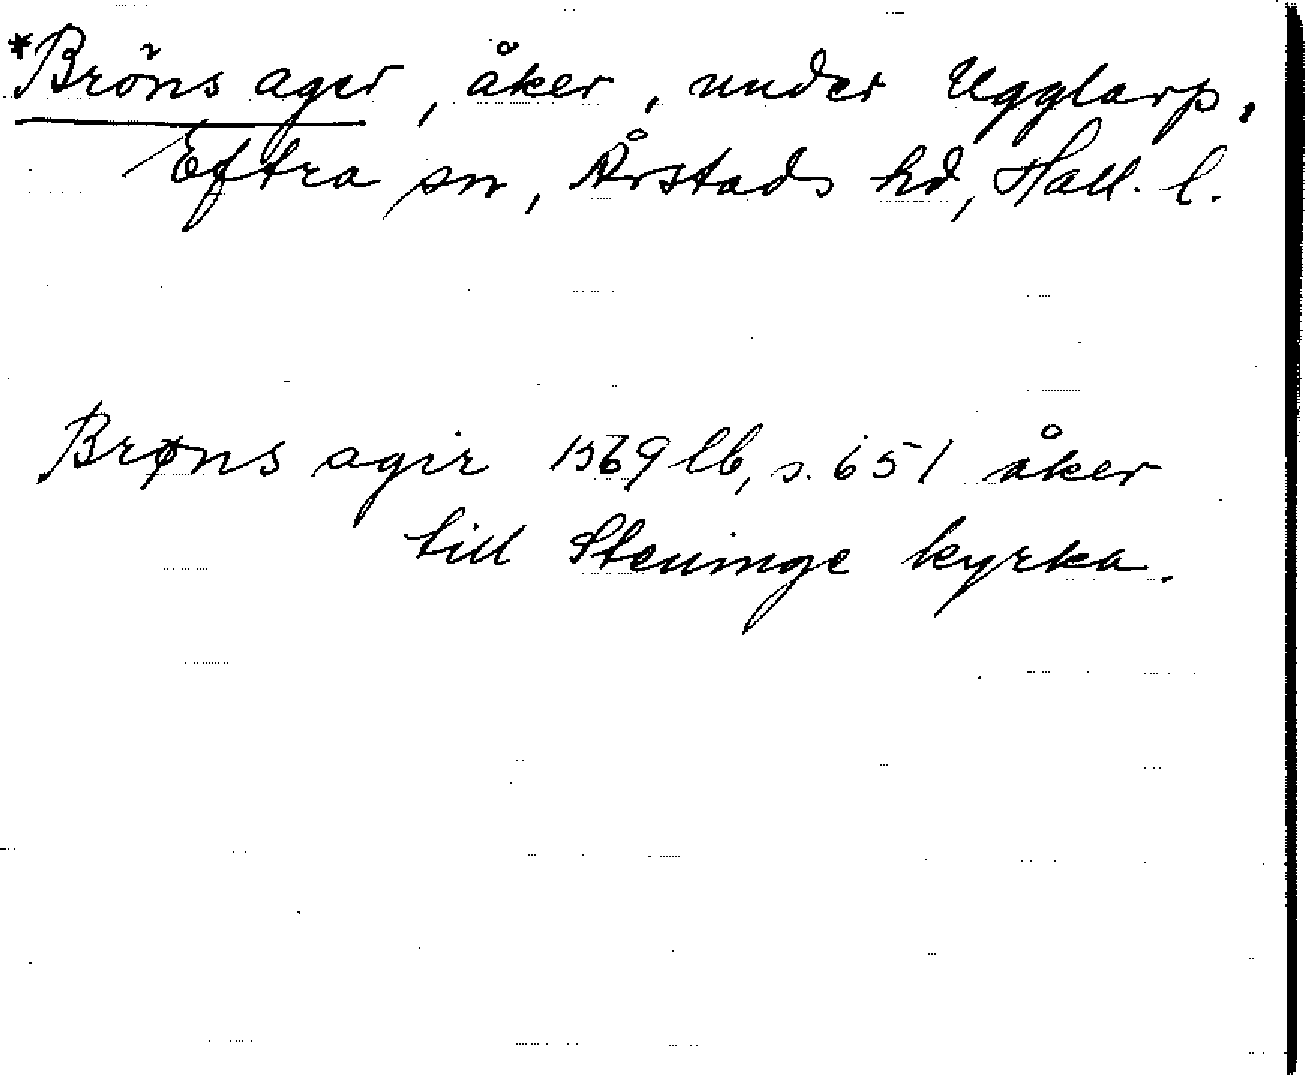 *Bröns ager, åker, under Ugglarp,
Eftra sn, Årstads hd, Hall. l.
Brøns agir 1569 lb, s. 651 åker
till Steninge kyrka.